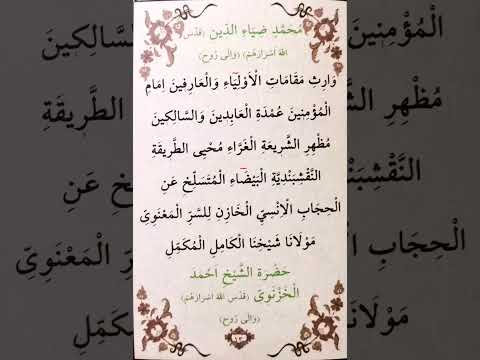 مُحَمَّدِ ضِيَاءِ الدّينِ (قَدَّسَ
اللهُ اَسْرَارَهُمْ) (وَاِلَى رُوحِ)
وَارِثِ مَقَامَاتِ الْاَوْلِيَاءِ وَالْعَارِفينَ اِمَامِ
الْمُؤْمِنينَ عُمْدَةِ الْعَابِدينَ وَالسَّالِكينَ
مُظْهِرِ الشَّريعَةِ الْغَرَّاءِ مُحْيِى الطَّريقَةِ
النَّقْشِبَنْدِيَّةِ الْبَيْضَاءِ الْمُتَسَلِّخِ عَنِ
الْحِجَابِ الْاِنْسِيِّ الْخَازِنِ لِلسِّرِّ الْمَعْنَوِىِّ
مَوْلَانَا شَيْخِنَا الْكَامِلِ الْمُكَمِّلِ
حَضْرَةِ الشَّيْخِ اَحْمَدَ
الْخَزْنَوِىِّ (قَدَّسَ اللهُ اَسْرَارَهُمْ)
(وَاِلَى رُوحِ)
١٣